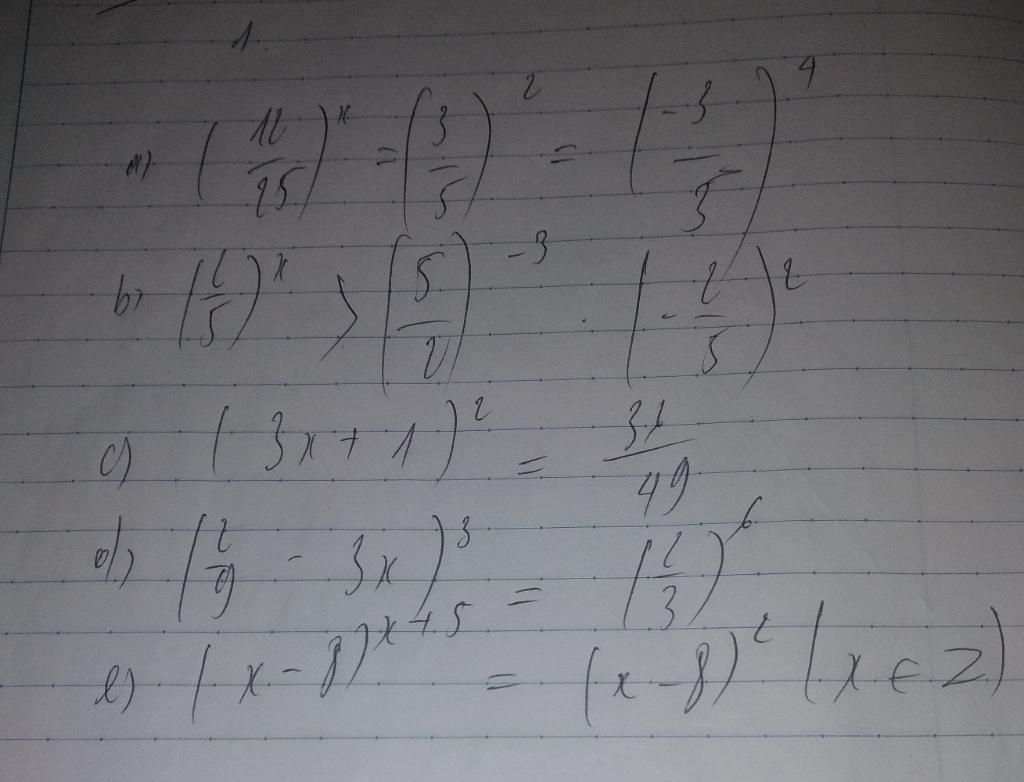 1.
a) (12/25)^x = (3/5)^2 = (-3/5)^4
b) (2/5)^x > (5/2)^-3 . (-2/5)^2
c) (3x + 1)^2 = /49
d) (2/9 - 3x)^3 = (2/3)^6
e) (x - 8)^x+5 = (x - 8)^2 (x ∈ Z)